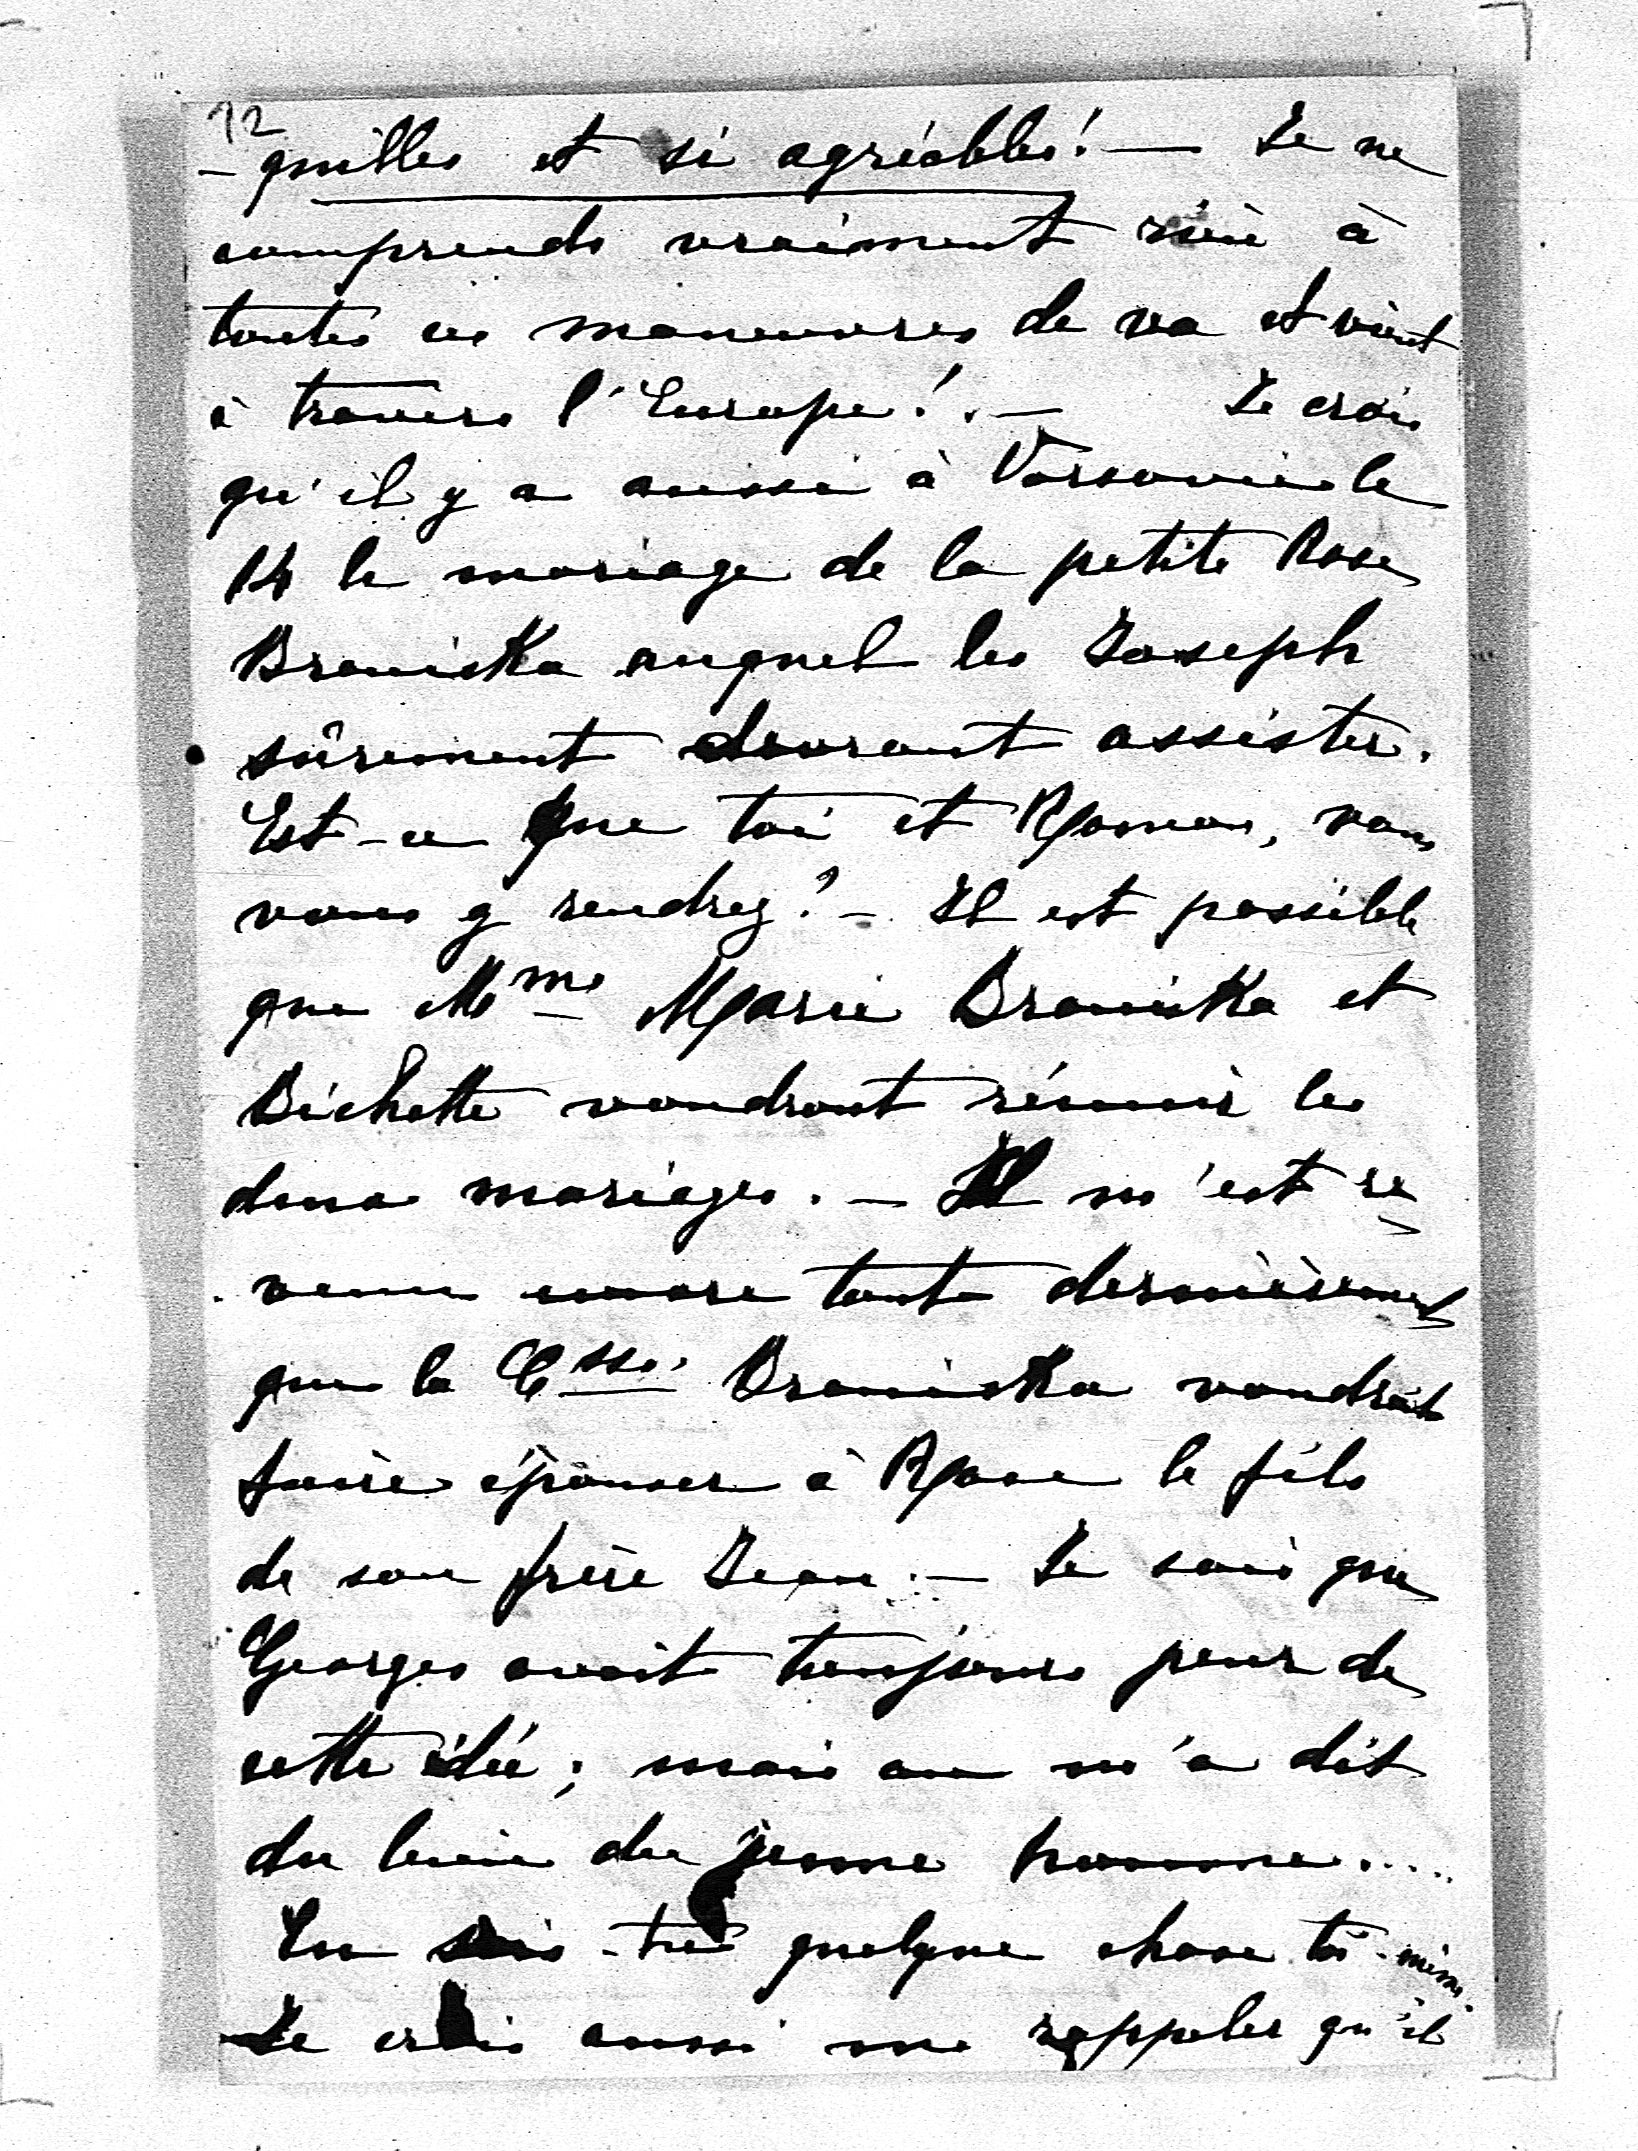 12
- quilles et si agréables! — Je ne
comprends vraiment rien à
toutes ces manœuvres de va et vient
à travers l'Europe! . — Je crois
qu'il y a aussi à Varsovie le
14 le mariage de la petite Rose
Braniçka auquel les Joseph
sûrement devront assister.
Est-ce que toi et Roman, vous
vous y rendrez? — Il est possible
que Mme Marie Braniçka et
Bichette voudront réunir les
deux mariages. — Il m'est re
venu encore tout dernièrement
que la Csse. Braniçka voudrait
faire épouser à Rose le fils
de son frère Jean. — Je sais que
Georges avait toujours peur de
cette idée; mais on m'a dit
du bien du jeune homme....
En sais-tu quelque chose toi-même.
Je crois aussi me rappeler qu'il